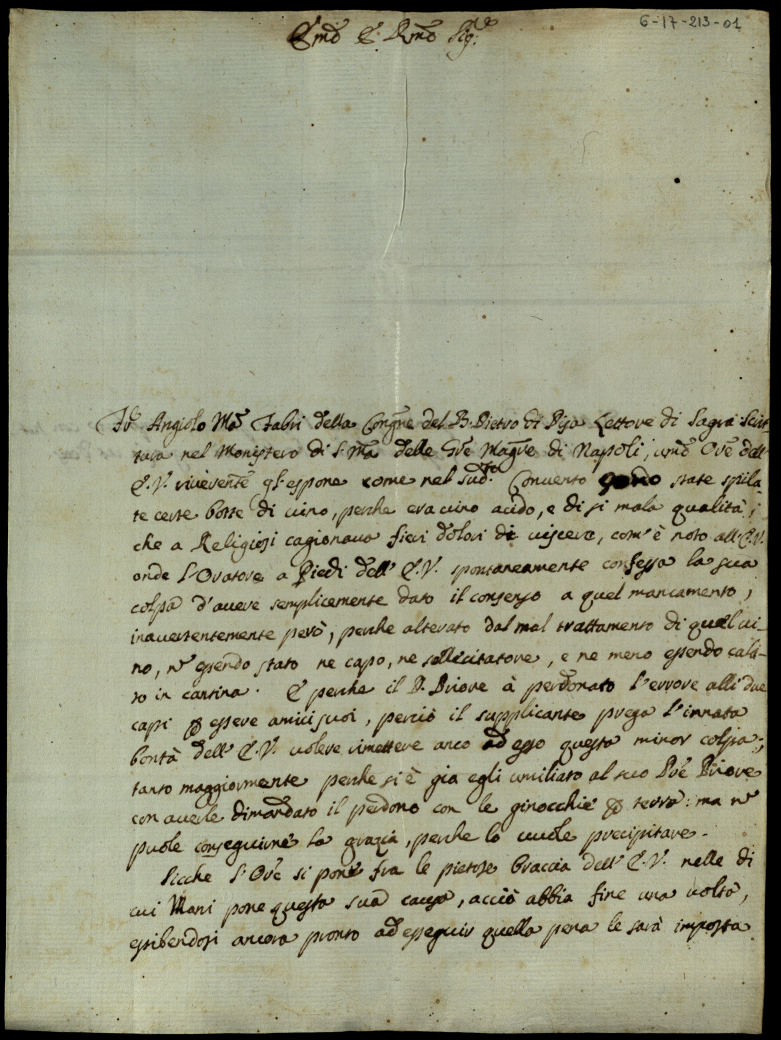 6-17-213-01
Emo E: Rmo Sig:re
Fr. Angiolo Ma Fabri della Congne del B. Pietro di Pisa Lettore di Sagra Scrit
tura nel Monistero di S. Ma delle Gre Magre di Napoli, umo Ore dell'
E.V. rivevente gl'espone come nel sud:to Convento state spila
te certe botte di vino, perche era vino acido, e di si mala qualità,
che a Religiosi cagionava fieri dolori di viscere, com'è noto all'E.V.
onde l'Oratore a Piedi dell'E.V. spontaneamente confessa la sua
colpa d'avere semplicemente dato il consenso a quel mancamento,
inavertentemente però, perche alterato dal mal trattamento di quel vi-
no, nè essendo stato ne capo, ne sollecitatore, e ne meno essendo cala-
to in cantina. E perche il P. Priore à perdonato l'errore alli due
capi p essere amici suoi, perciò il supplicante prega l'innata
bontà dell'E.V. volere rimettere anco ad esso questa minor colpa;
tanto maggiormente perche si è gia egli umiliato al suo Pre Priore
con averle dimandato il perdono con le ginocchie p terra: ma nè
puole conseguirne la grazia, perche lo vuole precipitare.
Sicche l'Ore si pone fra le pietose braccia dell'E.V. nelle di
cui Mani pone questa sua causa, acciò abbia fine una volta,
esibendosi ancora pronto ad esseguir quella pena le sarà imposta